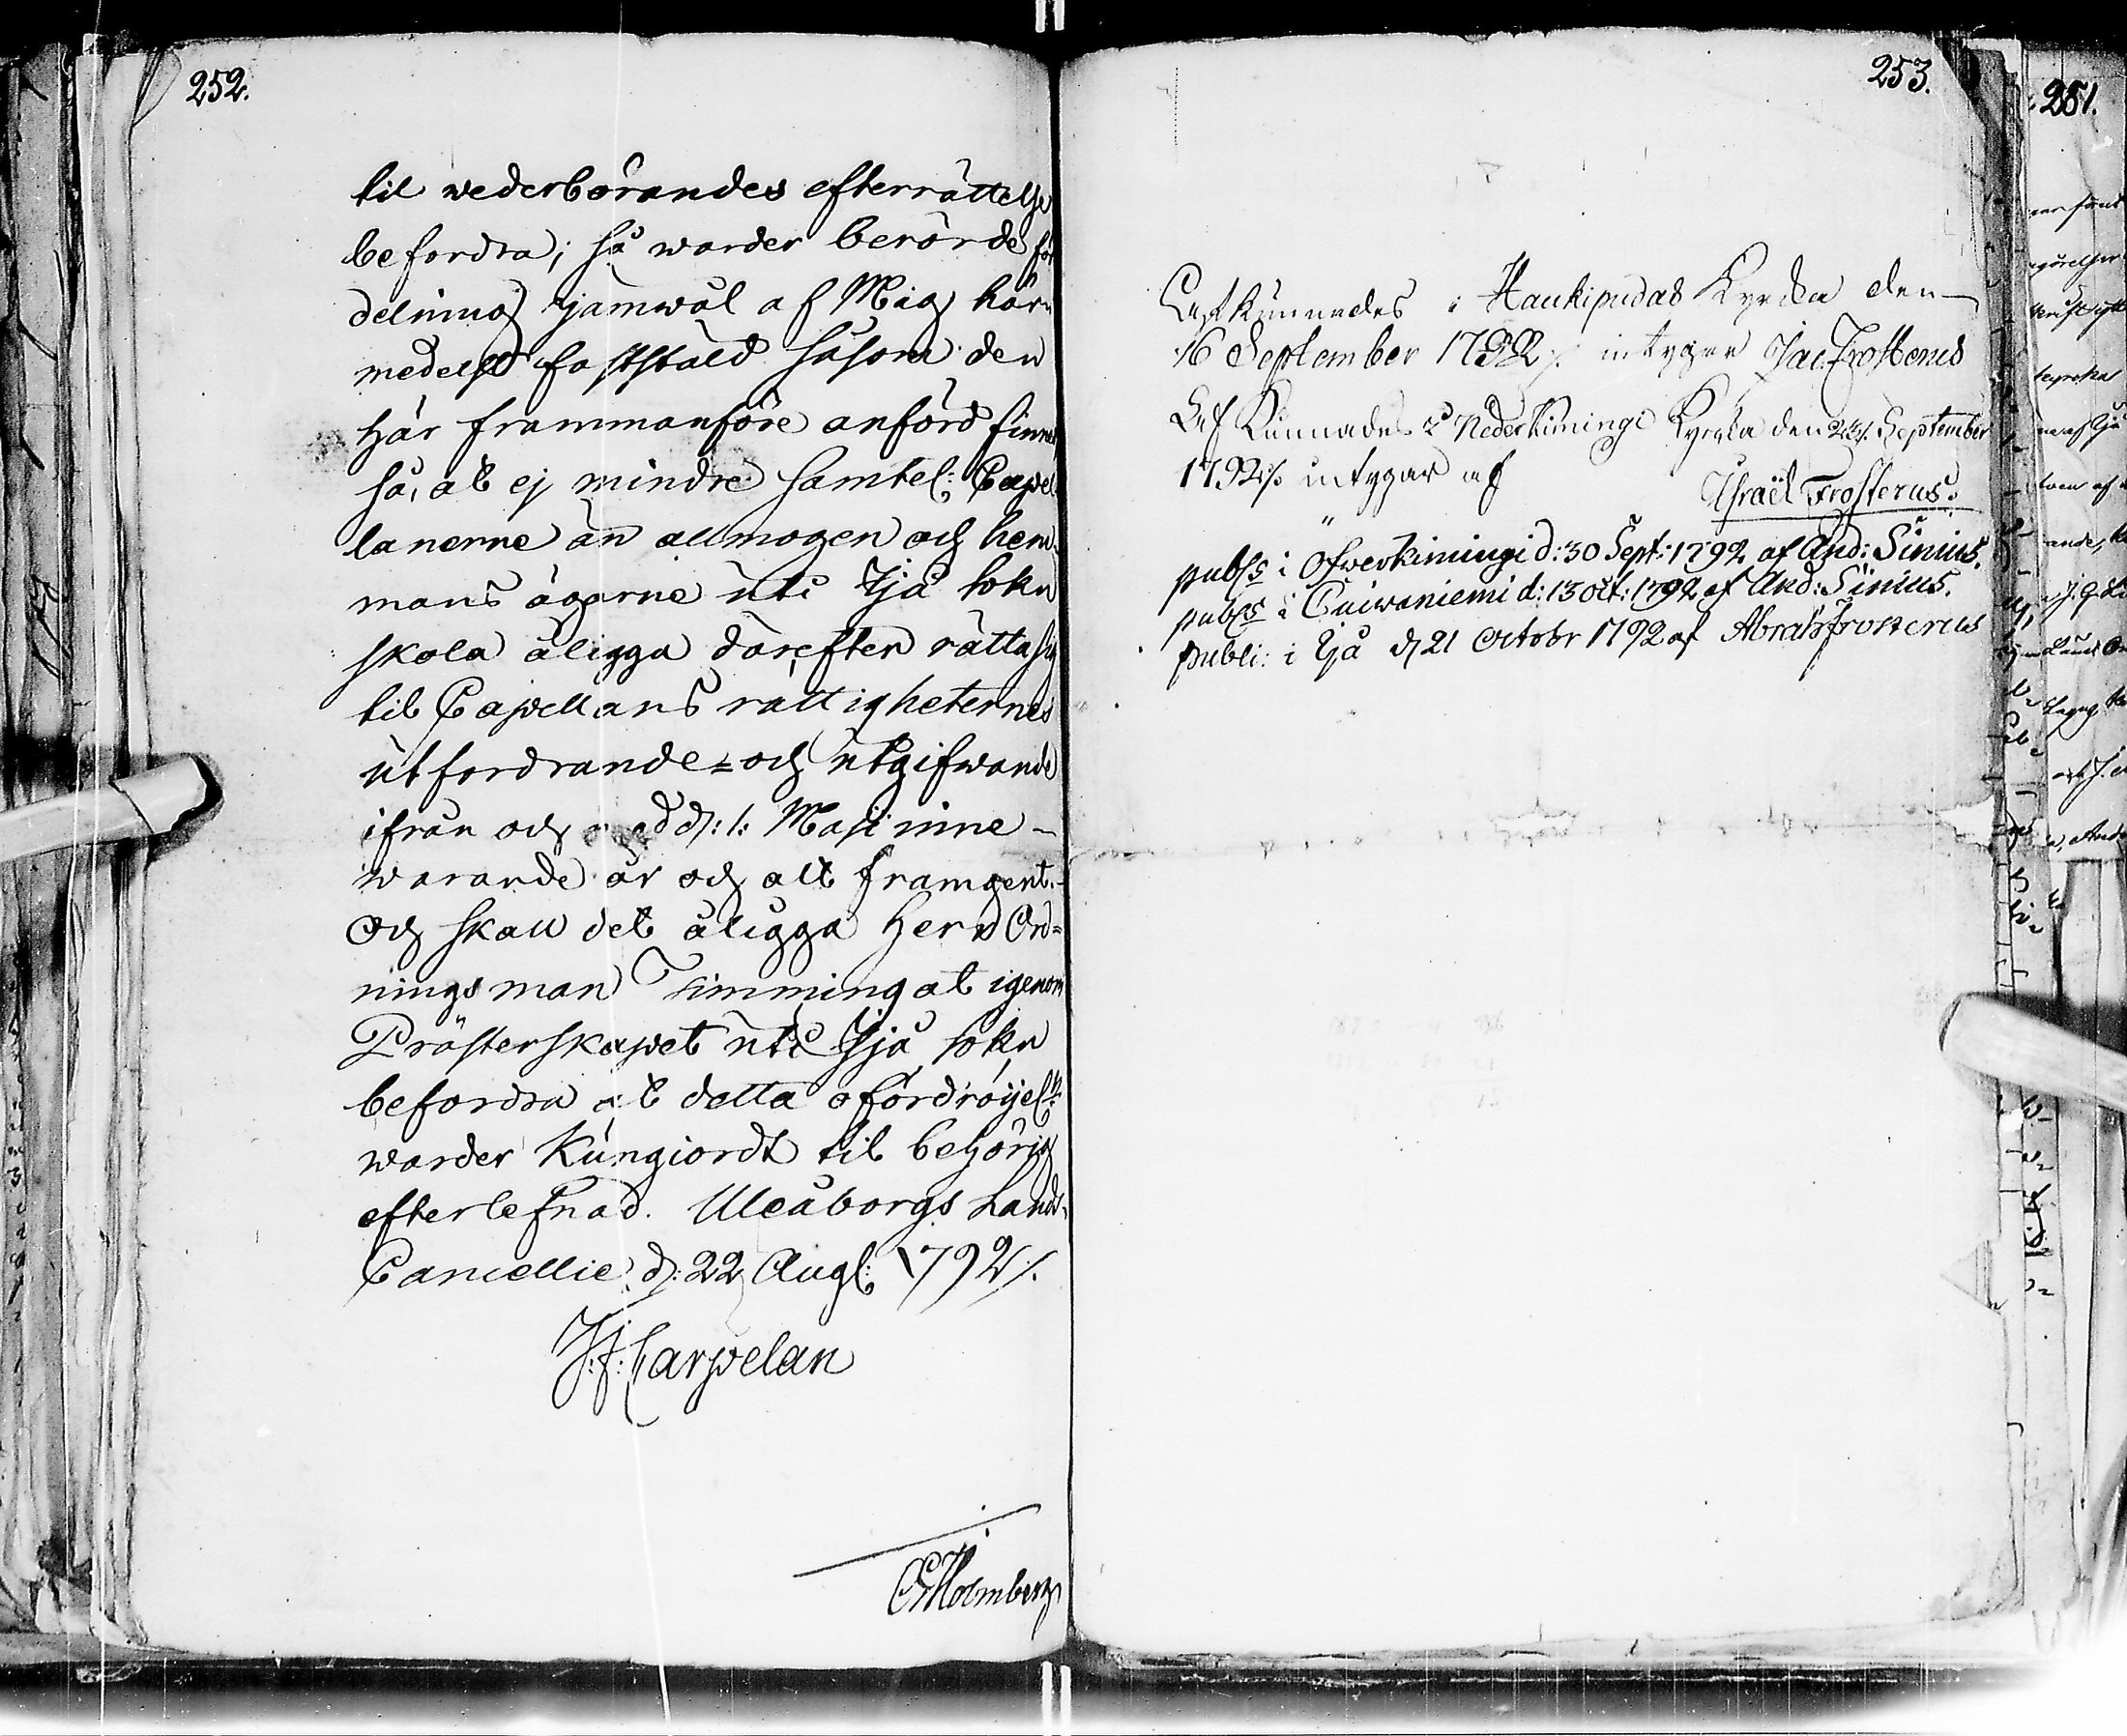 252.
til wederbörandes efterrättelse
befordra; så warder berörde för
delning jämwäl af Mig här
medelst faststäld såsom den
här frammanföre anförd finnes
så, at ej mindre samtel: Capel
lanerne än allmogen och hem-
mans ägarne uti Ijå sokn
skola åligga därefter rätta sig
til Capellans rättigheternes
utfordrande- och utgifwande
ifrån och med d: 1: Maji inne-
warande år och alt framgent.-
Och skall det åligga Herr Ord=
ningsman Timming at igenom
Prästerskapet uti Ijå sokn
befordra at detta ofördröyel:n
warder kungiordt til behörig
efterlefnad. Uleåborgs Lands-
Cancellie d: 22 Augl: 1792/.
J: f: Carpelan
CHolmberg
253.
Kyrka den
16 September 1792/. intygar Jac: Frosterus
Nederkimingi Kyrka den 23/. September
1792/. intygar af
Israël Frosterus.
publs i Öfwerkimingi d: 30 Sept: 1792 af And: Sinius.
publs i Cuiwaniemi d: 13 oct: 1792 af And: Sinius.
publi: i Ijå d 21 Octobr 1792 af Abrah Frosterus
251.